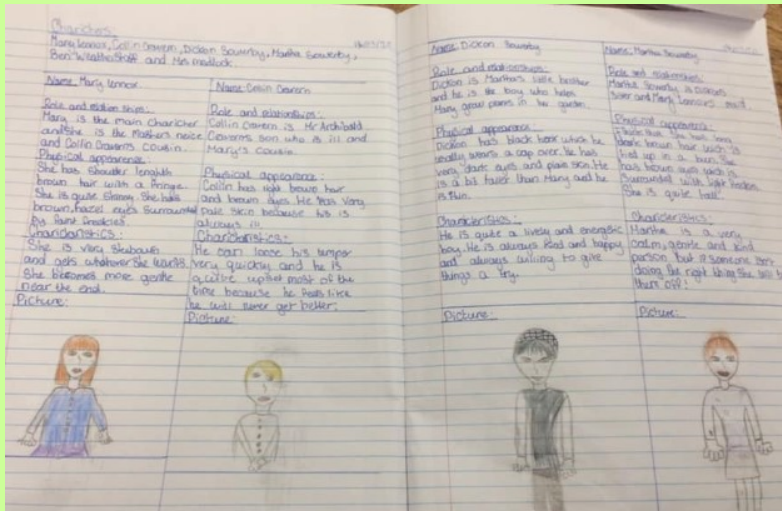 Charichters:
Mary Lennox, Collin Cravern, Dickon Sowerby, Martha Sowerby,
Ben Weatherstaff and Mrs medlock.
Name: Mary lennox
Role and relation ships:
Mary is the main charicter
and she is the Masters neice
and Collin Craverns cousin.
Physical appearance:
She has shoulter lenghth
brown hair with a fringe.
She is quite skinny. She has
brown, hazel eyes surrounded
by faint freckles.
Charicteristics:
She is very stubourn
and gets whatever she wants.
She becomes more gentle
near the end.
Picture:
Name: Collin Cravern
Role and relationships:
Collin Cravern is Mr Archibald
Craverns son who is ill and
Mary's cousin.
Physical appearance:
Collin has light brown hair
and brown eyes. He has very
pale skin because his is
always ill.
Charicteristics:
He can loose his temper
very quickly and he is
quitre upset most of the
time because he feels like
he will never get better.
Picture:
Name: Dickon Sowerby
Role and relationships:
Dickon is Martha's little brother
and he is the boy who helps
Mary grow plants in her garden.
Physical appearance:
Dickon has black hair which he
usally wears a cap over. he has
very dark eyes and plain skin. He
is a bit taller than Mary and he
is thin.
Charicteristics:
He is quite a lively and energetic
boy. He is always kind and happy
and always willing to give
things a try.
Picture:
Name: Martha Sowerby
Role and relationships:
Martha Sowerby is Dickons
sister and Mary Lennox's maid
Physical appearance:
dark brown hair wich is
tied up in a bun. She
has brown eyes wich is
surrounded with light freckles.
She is quite tall.
Charicteristics:
Martha is a very
calm, gentle and kind
person but if someone isn't
doing the right thing she will tell
there off!
Picture: